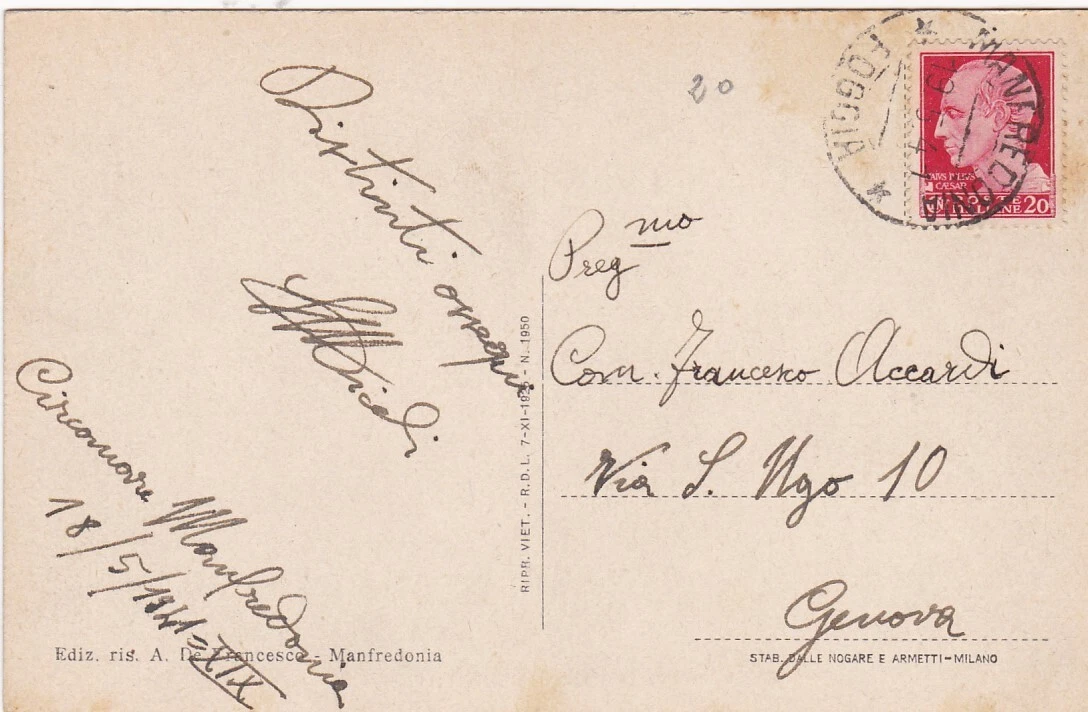 Distinti ossequi
Circomare Manfredonia
18/5/1941=XIX
Ediz. ris. A. De Francesco - Manfredonia
RIPR. VIET. - R.D.L. 7-XI-1925 - N. 1950
20
MANFREDONIA
FOGGIA
CAIVS IVLIVS
CAESAR
POSTE
ITALIANE 20
Preg mo
Com. Francesco Accardi
Via S. Ugo 10
Genova
STAB. DALLE NOGARE E ARMETTI-MILANO